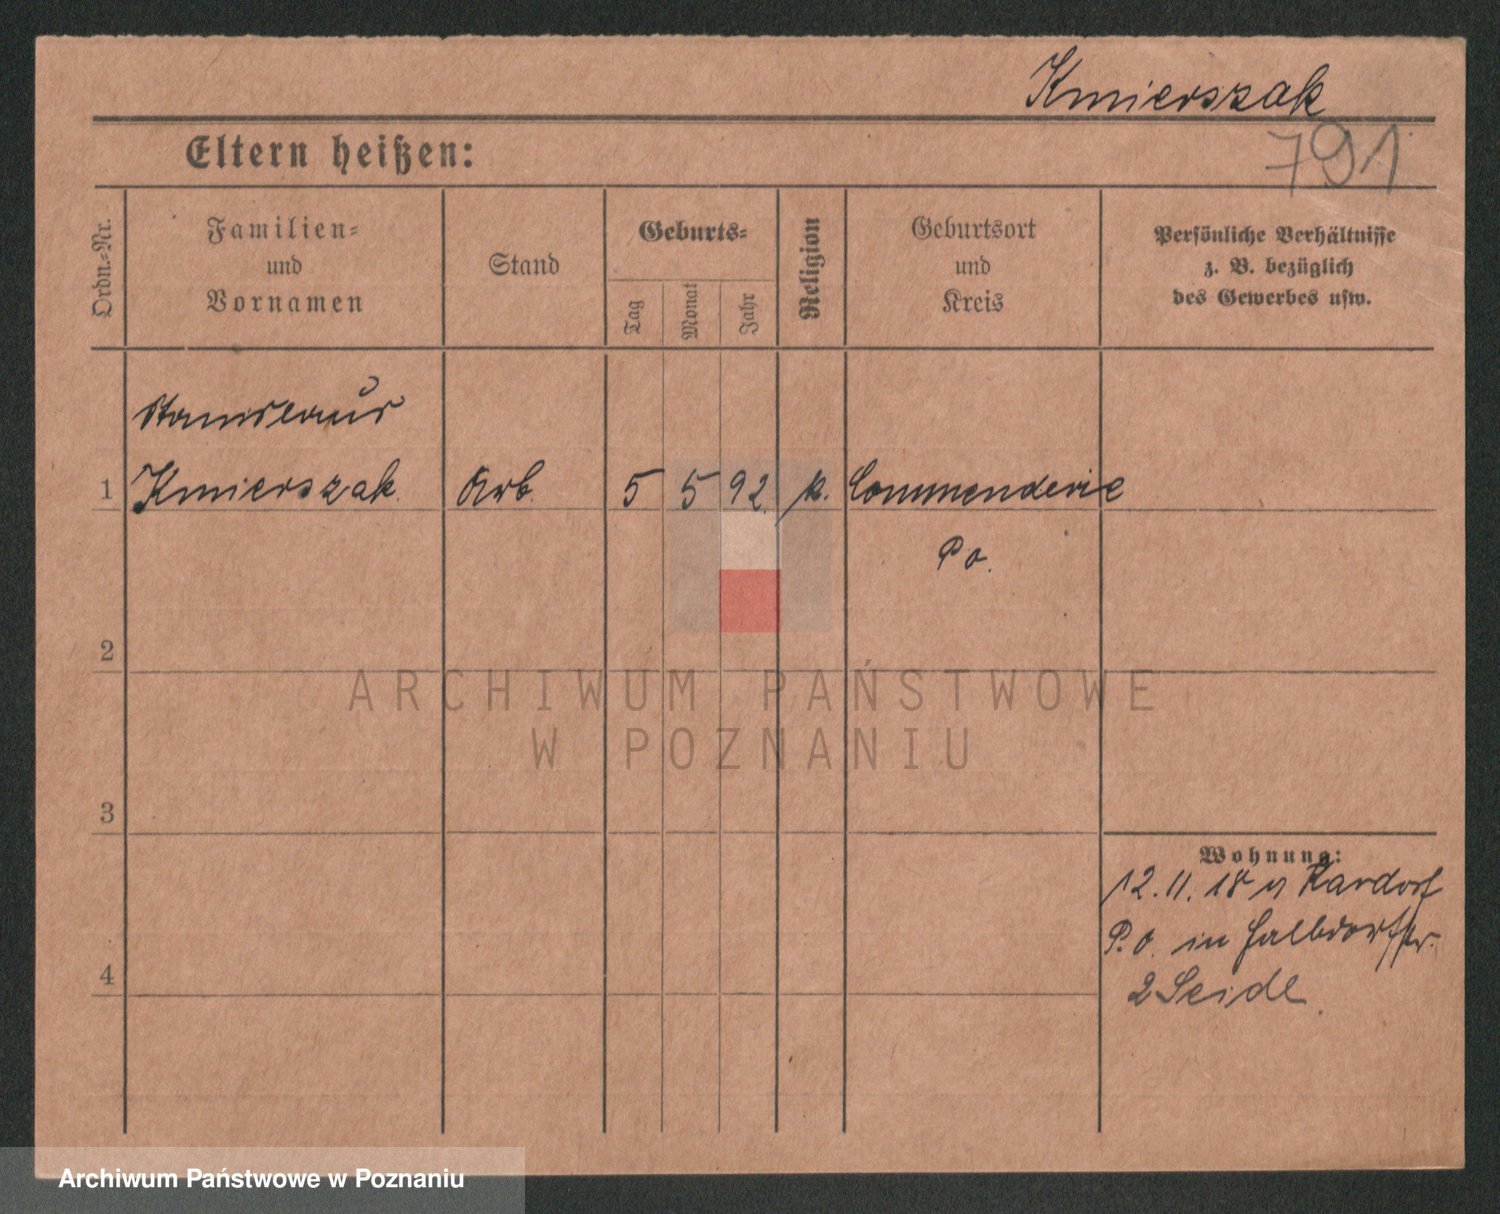 Kmierszak
Eltern heißen:
791
Ordn.-Nr.
Familien-
und
Vornamen
Stand
Geburts-
Tag
Monat
Jahr
Religion
Geburtsort
und
Kreis
Persönliche Verhältnisse
z. B. bezüglich
des Gewerbes usw.
Stanislaus
1 Kmierszak Arb. 5 5 92 k. Commenderie
Po.
2
ARCHIWUM PAŃSTWOWE
W POZNANIU
3
Wohnung:
12.11.18 Kardorf
P.O. in Halbdorfstr.
4
2 Seidl
Archiwum Państwowe w Poznaniu